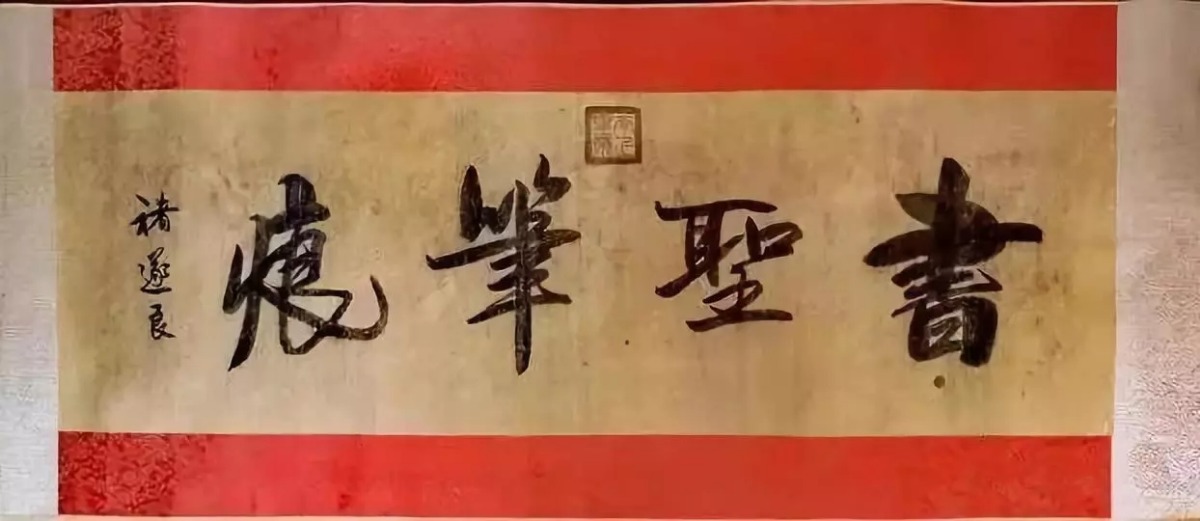 書聖筆痕
褚遂良